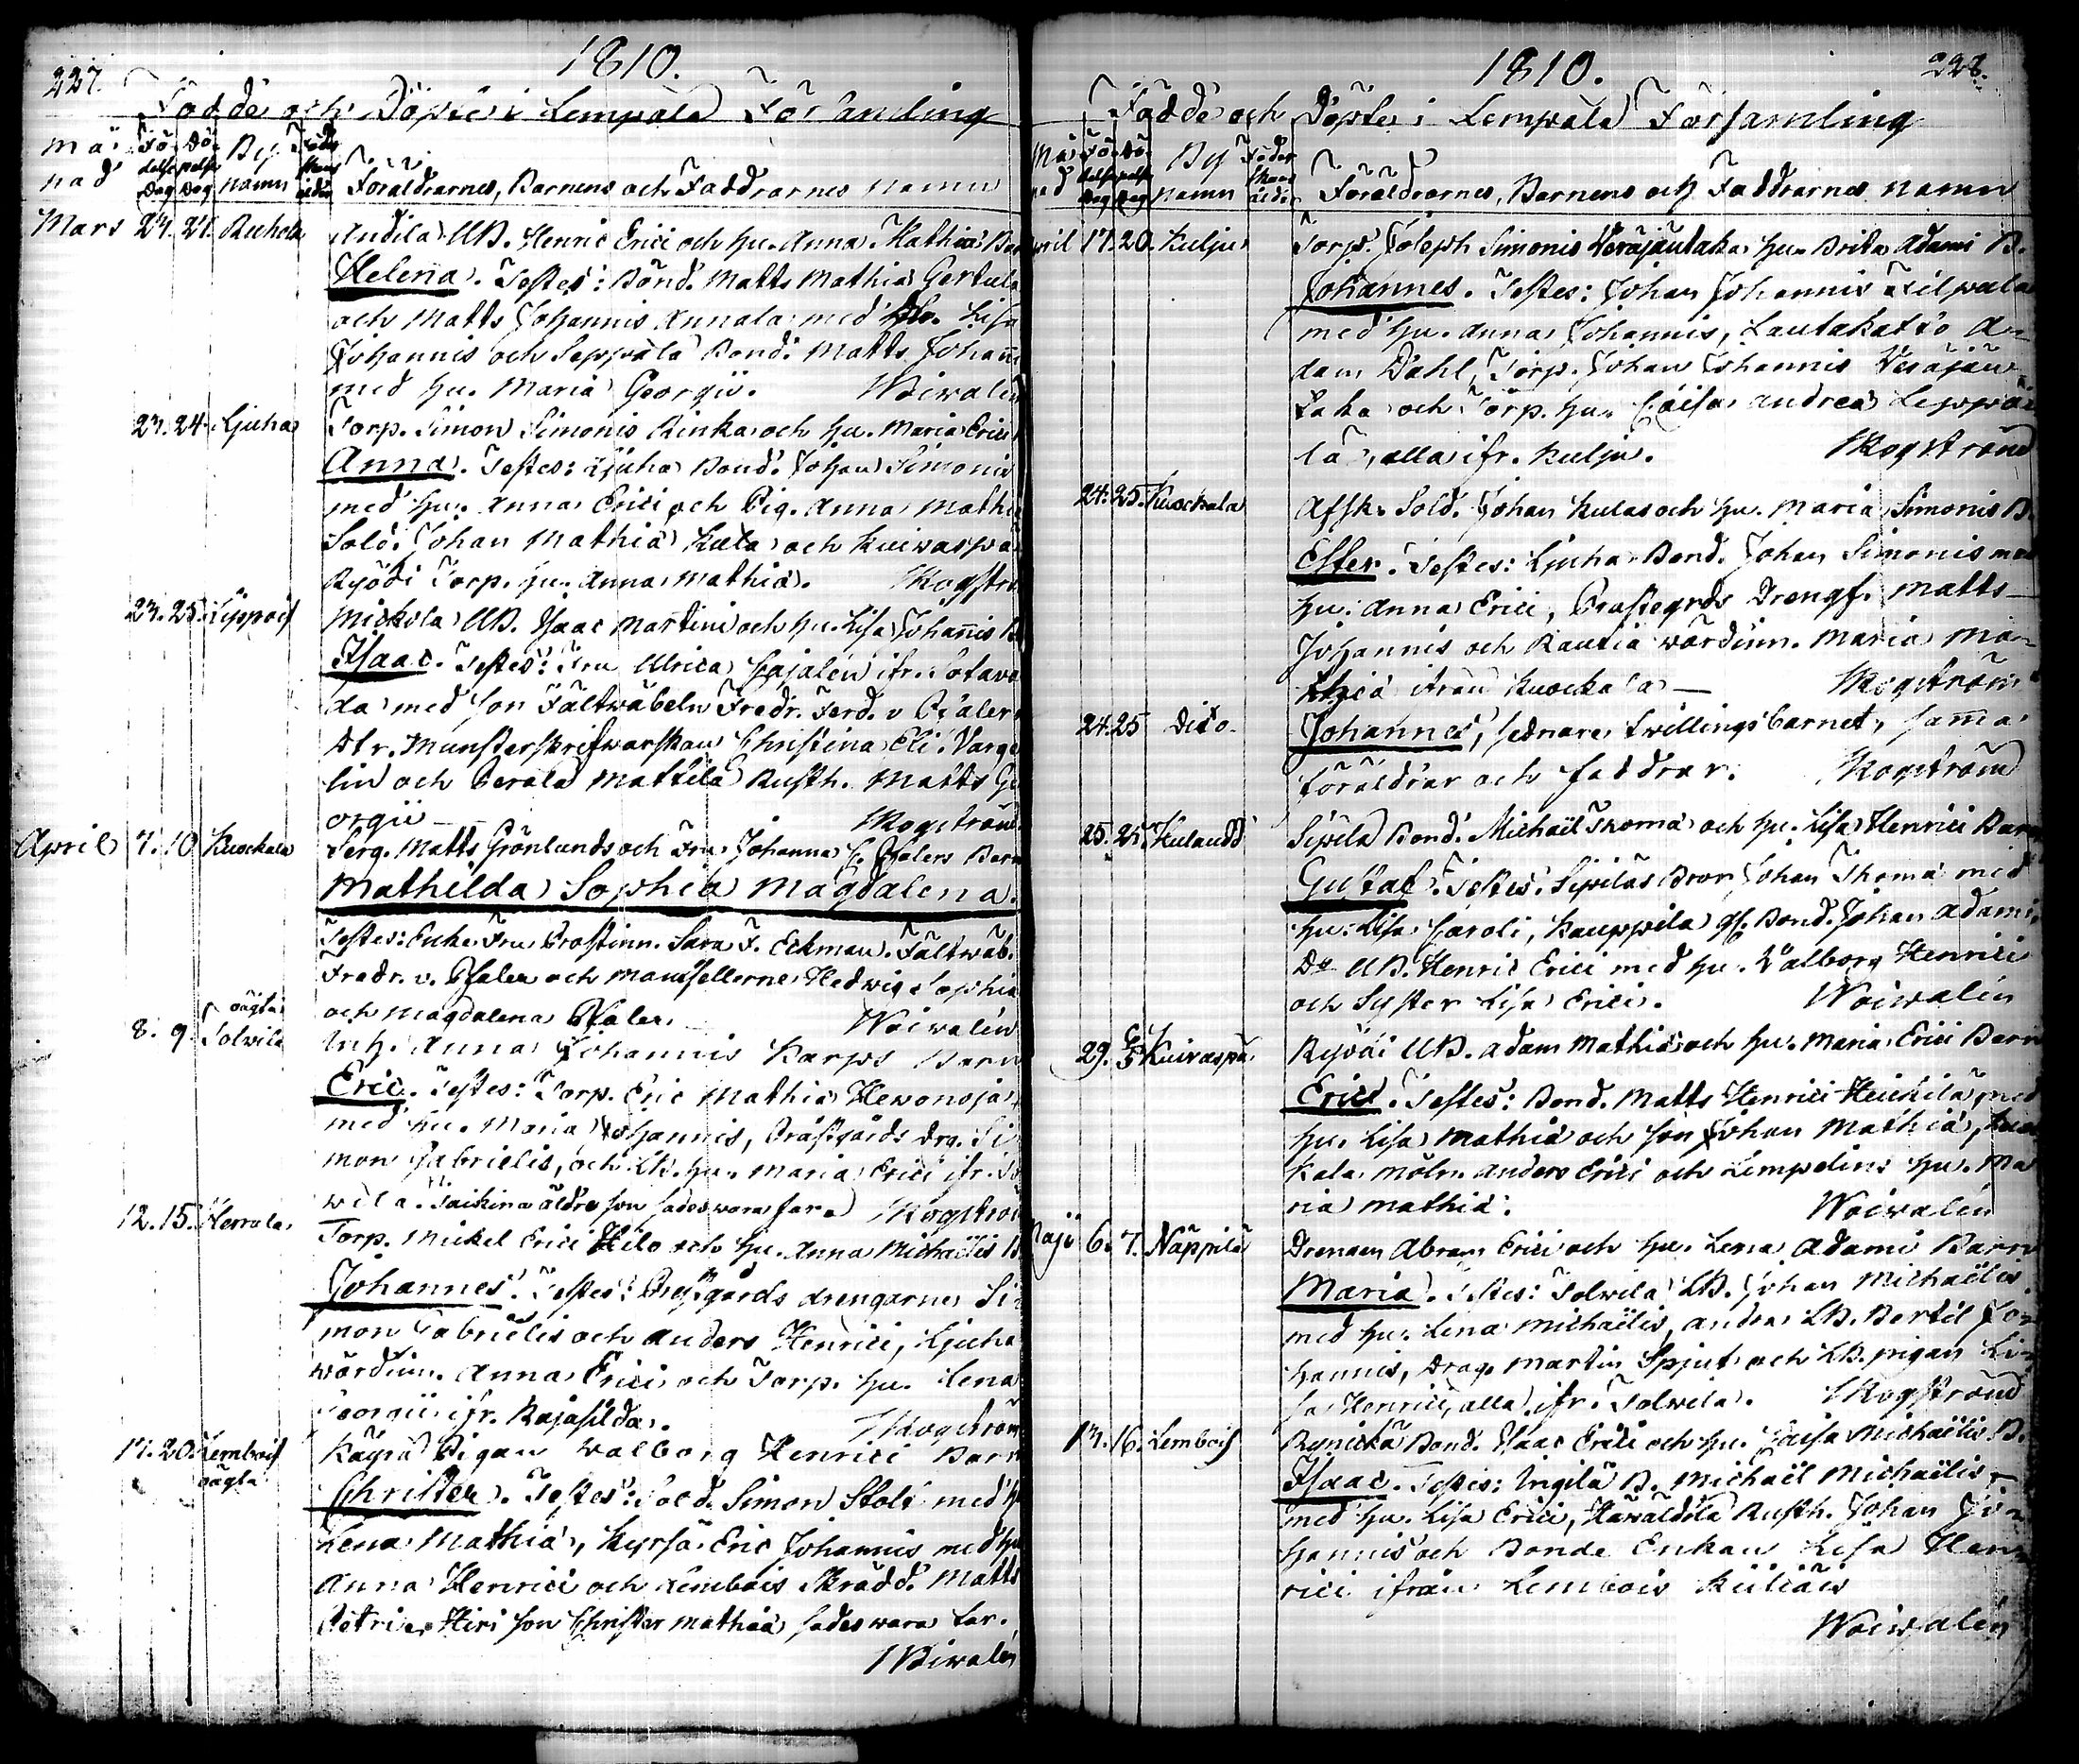 227.
1810.
Födde och Döpte i Lempala Församling
Må
nad
Fö
delse
Dag
Dö
pelse
Dag
By
namn
Föräldrarnes, Barnens och Faddrarnes namn
Mars 24. 27. Kuhola
Andila UB. Henric Erici och hu. Anna Mathiæ Bar
Helena. Testes: Bond. Matts Mathiæ Gertula
och Matts Johannis Annala med hu. Lisa
Johannis och Seppälä Bond. Matts Johann
med hu. Maria Georgii. Woiwalen
23. 24. Ljuha
Torp. Simon Simonis Rinka och hu. Maria Erici
Anna. Testes: Ljuha Bond. Johan Simonis
med hu. Anna Erici och Pig. Anna Mathi
Sold. Johan Mathiæ Kula och Kuiwaspä
Ryödi Torp. hu. Anna Mathiæ. Skogstr
23. 25. Lippois
Mickola UB. Isaac Martini och hu. Lisa Johannis B
Isaac. Testes: Fru Ulrica Cajalén ifr. Sotava
da med son Fältwäbeln Fredr. Ferd. v Pfaler
Dtr. Munsterskrifwarskan Christina Eli. Varge
lin och Perala Mattila Rusth. Matts Ge
orgii — Skogström
April 7. 10 Kuockala
Serg. Matts Grönlunds och Fru Johanna C. Pfalers Barn
Mathilda Sophia Magdalena.
Testes: Enke Fru Prostinn. Sara F. Eckman. Fältwäb.
Fredr. v. Pfaler och Mamsellerne Hedwig Sophia
och Magdalena Pfaler. Woiwalén
8. 9. Tolwila ägta
Inh. Anna Johannis Karps Barn
Eric. Testes: Torp. Eric Mathiæ Hewonoja
med hu. Maria Johannis, Prästgårds drg. Si
mon Gabrielis, och LB. hu. Maria Erici ifr. To
wila. äldre son sades wara far Skogströ
12. 15. Herrala
Torp. Mickel Erici Hilo och hu. Anna Michaëlis B
Johannes. Testes: Prästgårds drengarne Si-
mon Gabrielis och Anders Henrici, Ljuha
wärdinn. Anna Erici och Torp. hu. Lena
Georgii ifr. Rajasilda. Skogström
17. 20. Lembois oägta
Käyrä Pigan Walborg Henrici Barn
Christer. Testes: Sold. Simon Stolt med hu
Lena Mathiæ, Kyrsä Eric Johannis med hu
Anna Henrici och Lembois Skrädd. Matts
Petri. Hiri son Christer Mathiæ sades wara far.
Woiwalén
1810.
228.
Födde och Döpte i Lempälä Församling
Må
nad
Fö
delse
Dag
Dö
pelse
Dag
By
namn
Föder
skans
ålder
Föräldrarnes, Barnens och Faddrarnes namn
April 17. 20. Kulju
Torp. Joseph Simonis Weräjäntaka hu. Brita Adami B.
Johannes. Testes: Johan Johannis Filpula
med hu. Anna Johannis, Lautakatto A-
dam Dahl, Torp. Johan Johannis Weräjän
taka och Torp. hu. Caisa Andreæ Leppä
lä, alla ifr. Kulju. Skogström
24. 25. Kuockala
Afsk. Sold. Johan Kulas och hu. Maria Simonis B.
Ester. Testes: Ljuha Bond. Johan Simonis med
hu. Anna Erici, Prästegrds Drengf. Matts
Johannis och Rautia wärdinn. Maria Ma-
thiæ ifrån Kuockala — Skogström
24. 25 Dito.
Johannes, sednare twillingsbarnet, samma
föräldrar och faddrar. Skogström
25. 25. Kulaudd
Sipilä Bond. Michaël Thomæ och hu. Lisa Henrici Barn
Gustaf. Testes: Sipiläs Bror Johan Thomæ med
hu. Lisa Caroli, Kauppila gf. Bond. Johan Adami,
Do UB. Henric Erici med hu. Walborg Henrici
och Syster Lisa Erici. Woiwalén
29. 6/5 Kuiraspä
Ryödi UB. Adam Mathiæ och hu. Maria Erici Barn
Eric. Testes: Bond. Matts Henrici Heickilä med
hu. Lisa Mathiæ och son Johan Mathiæ, Kuo
kala möln. Anders Erici och Limpelins hu. Ma
ria Mathiæ. Woiwalén
Maji 6. 7. Näppilä
Drengen Abram Erici och hu. Lena Adami Barn
Maria. Testes: Tolwila LB. Johan Michaëlis
med hu. Lena Michaëlis, andra LB. Bertil Jo-
hannis, Drag. Martin Spjut och LB. pigan Li-
sa Henrici, alla ifr. Tolwila. Skogström
13. 16. Lembois
Rynickä Bond. Isaac Erici och hu. Caisa Michaëlis B.
Isaac. Testes: Urgilä B. Michaël Michaëlis
med hu. Lisa Erici, Hawaldila Rusth. Johan Jo-
hannis och Bonde Enkan Lisa Hen-
rici ifrån Lembois Kiliäis
Woiwalén